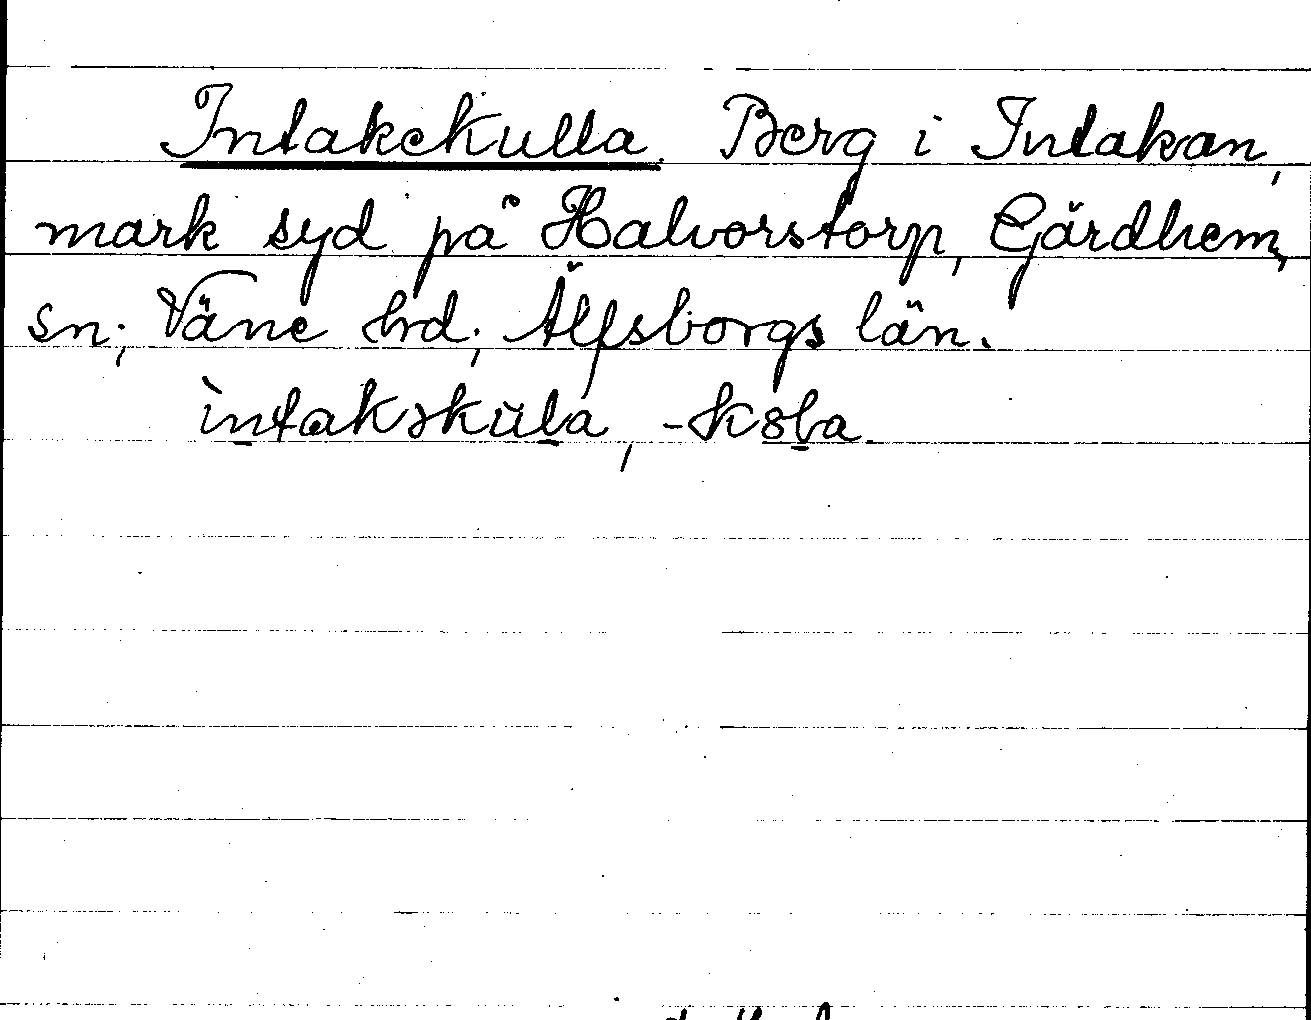 Intakekulla. Berg i Intakan,
mark syd på Halvorstorp, Gärdhem,
sn; Väne hrd; Älfsborgs län.
intakskula,